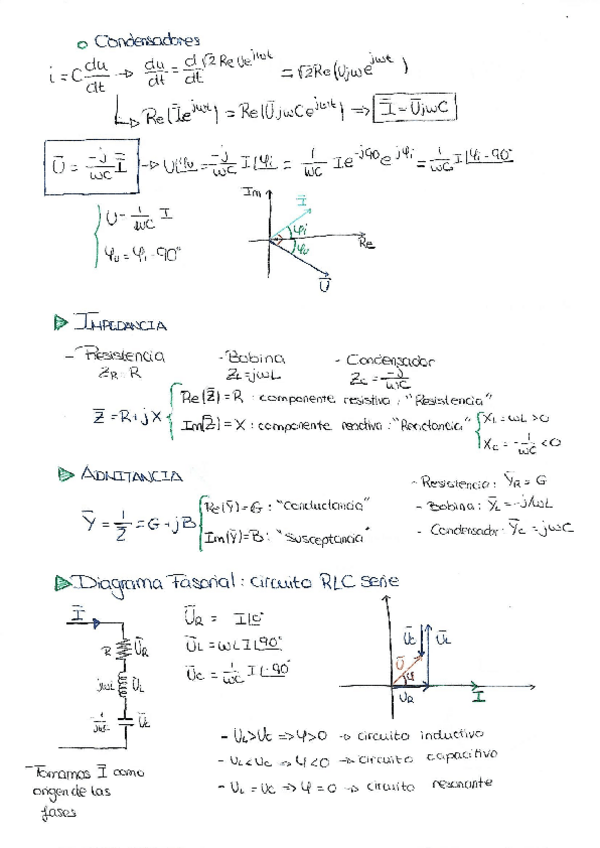 o Condensadores
i = C du/dt → du/dt = d/dt √2 Re Ue^jωt = √2 Re(Ujωe^jωt)
↳ Re(Īe^jωt) = Re(ŪjωCe^jωt) ⇒ Ī = ŪjωC
Ū = -j/ωC Ī → U∠φu = -j/ωC I∠φi = 1/ωC Ie^-j90 e^jφi = 1/ωC I∠φi - 90°
U = 1/ωC I
φu = φi - 90°
Im
Ī
φi
φu
Re
Ū
▷ IMPEDANCIA
- Resistencia - Bobina - Condensador
ZR = R ZL = jωL Zc = -j/ωC
Z̄ = R + jX
Re(Z̄) = R : componente resistiva : "Resistencia"
Im(Z̄) = X : componente reactiva : "Reactancia"
XL = ωL > 0
Xc = -1/ωC < 0
▷ ADMITANCIA
Ȳ = 1/Z̄ = G + jB
Re(Ȳ) = G : "Conductancia"
Im(Ȳ) = B : "Susceptancia"
- Resistencia : ȲR = G
- Bobina : ȲL = -j/ωL
- Condensador : Ȳc = jωC
▷ Diagrama Fasorial : circuito RLC serie
Ī
R ŪR
jωL ŪL
-j/ωC Ūc
ŪR = I∠0°
ŪL = ωL I∠90°
Ūc = 1/ωC I∠-90°
Ūc ŪL
Ū
φ
UR
Ī
- UL > Uc ⇒ φ > 0 → circuito inductivo
- UL < Uc ⇒ φ < 0 → circuito capacitivo
- UL = Uc ⇒ φ = 0 → circuito resonante
- Tomamos Ī como
origen de las
fases